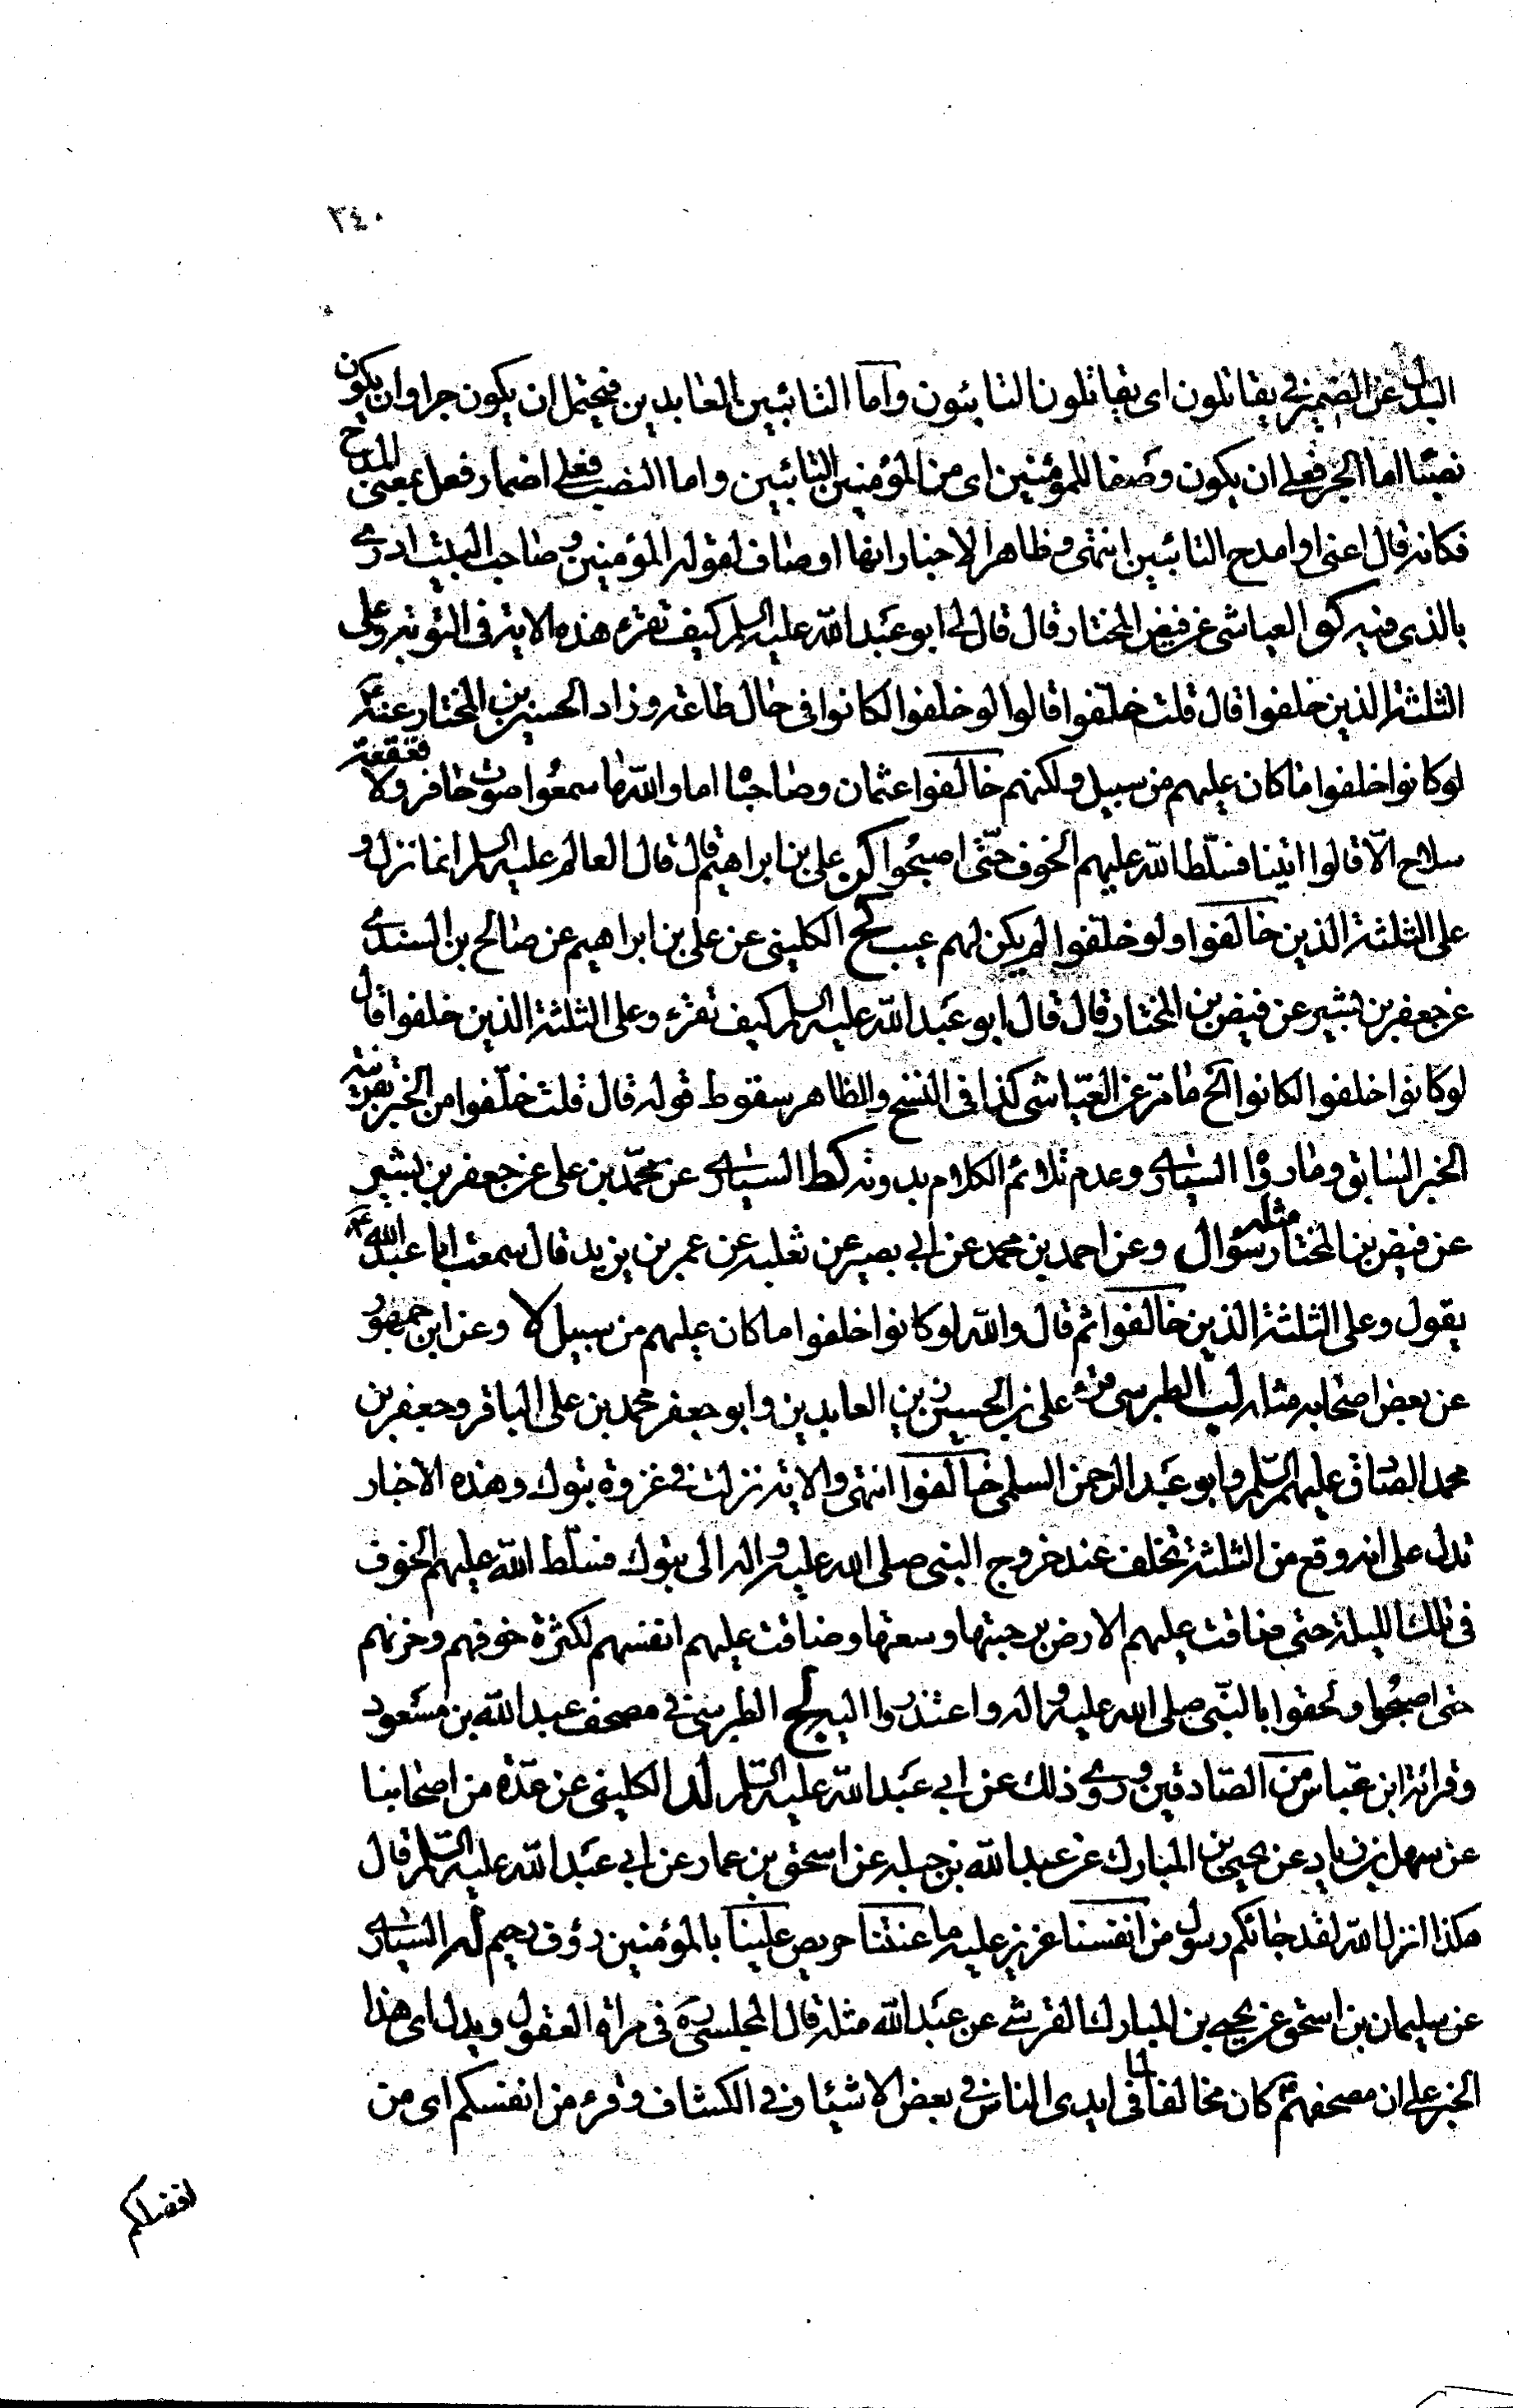 ٢٤٠
البدل عن الضمير في يقاتلون اى يقاتلون التائبون واما التائبين العابدين فيحتمل ان يكون جرا وان يكون
نصبا اما الجر فعلى ان يكون وصفا للمؤمنين اى من المؤمنين التائبين واما النصب فعلى اضمار فعل بمعنى المدح
فكانه قال اعنى او امدح التائبين انتهى وظاهر الاخبار انها اوصاف لقوله المؤمنين وصاحب البيت ادرى
بالذى فيه كو العياشى عن فيض المختار قال قال لى ابو عبد الله عليه السلم كيف تقرء هذه الاية فى التوبة وعلى
الثلثة الذين خلفوا قال قلت خلفوا قال لو خلفوا لكانوا فى حال طاعة وزاد الحسين بن المختار عنه
لو كانوا خلفوا ما كان عليهم من سبيل ولكنهم خالفوا عثمان وصاحباه اما والله ما سمعوا صوت حافر ولا قعقعة
سلاح الا قالوا اتينا فسلط الله عليهم الخوف حتى اصبحوا كز على بن ابراهيم قال قال العالم عليه السلم انما نزل و
على الثلثة الذين خالفوا ولو خلفوا لم يكن لهم عيب كح الكلينى عن على بن ابراهيم عن صالح بن السندى
عن جعفر بن بشير عن فيض بن المختار قال قال ابو عبد الله عليه السلم كيف تقرء وعلى الثلثة الذين خلفوا قال
لو كانوا خلفوا لكانوا الخ ما مر عن العياشى كذا فى النسخ والظاهر سقوط قوله قال قلت خلفوا من الخبر بقرينة
الخبر السابق وما رواه السيارى وعدم تلائم الكلام بدونه كط السيارى عن محمد بن على عن جعفر بن بشير
عن فيض بن المختار مثله سؤال وعن احمد بن محمد عن ابى بصير عن ثعلبه عن عمر بن يزيد قال سمعت ابا عبد الله ع
يقول وعلى الثلثة الذين خالفوا ثم قال والله لو كانوا خلفوا ما كان عليهم من سبيل لا وعن ابن جمهور
عن بعض اصحابه مثله لب الطبرسى قرء على بن الحسين زين العابدين وابو جعفر محمد بن على الباقر وجعفر بن
محمد الصادق عليهم السلم وابو عبد الرحمن السلمى خالفوا انتهى والاية نزلت فى غزوة تبوك وهذه الاخبار
تدل على انه وقع من الثلثة تخلف عند خروج النبى صلى الله عليه واله الى تبوك فسلط الله عليهم الخوف
فى تلك الليلة حتى ضاقت عليهم الارض برحبتها وسعتها وضاقت عليهم انفسهم لكثرة خوفهم وحزنهم
حتى اصبحوا ولحقوا بالنبى صلى الله عليه واله واعتذروا اليه لج الطبرسى فى مصحف عبد الله بن مسعود
وقرائة ابن عباس من الصادقين وروى ذلك عن ابى عبد الله عليه السلم لد الكلينى عن عدة من اصحابنا
عن سهل بن زياد عن يحيى بن المبارك عن عبد الله بن جبله عن اسحق بن عمار عن ابى عبد الله عليه السلم قال
هكذا انزل الله لقد جائكم رسول من انفسنا عزيز عليه ما عنتنا حريص علينا بالمؤمنين رؤف رحيم له السيارى
عن سليمان بن اسحق عن يحيى بن المبارك القرشى عن عبد الله مثله قال المجلسى ره فى مراة العقول ويدل اى هذا
الخبر على ان مصحفهم كان مخالفا لما فى ايدى الناس فى بعض الاشياء وفى الكشاف وقرء من انفسكم اى من
افضلكم